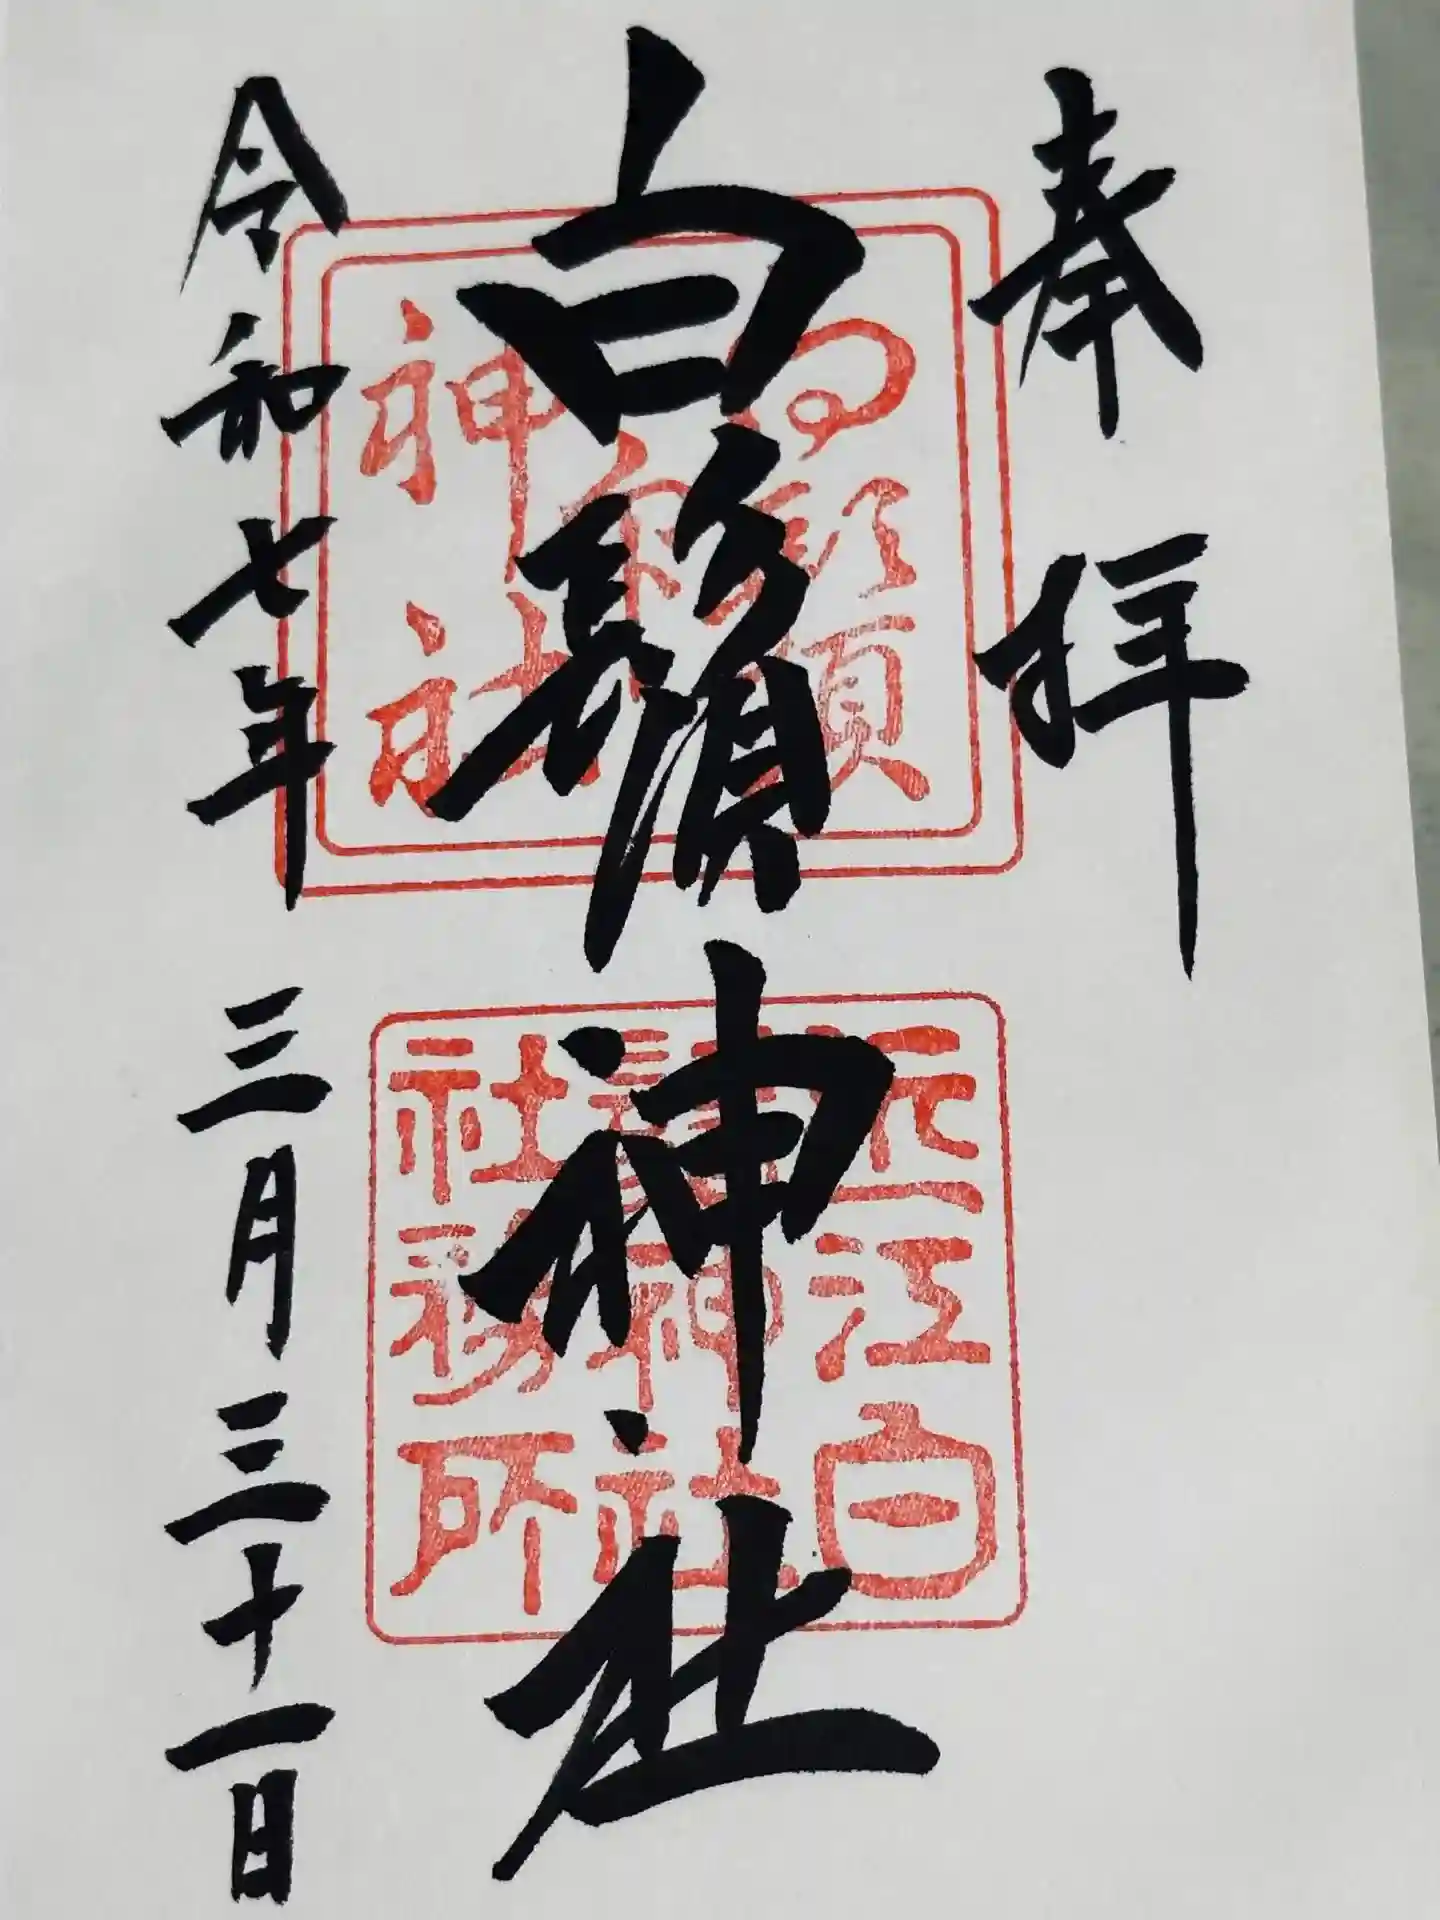 奉拝
白鬚神社
令和七年三月三十一日
神社
近江白
鬚神社
社務所